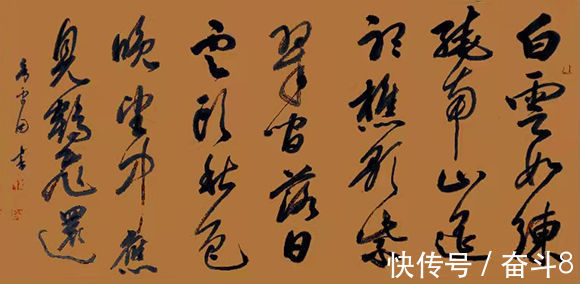 白雲如練
繞南山遙
認樵紫
翠間落日
雲頭秋色
晚望中應
見鶴飛還
書
快传号 / 奋斗8